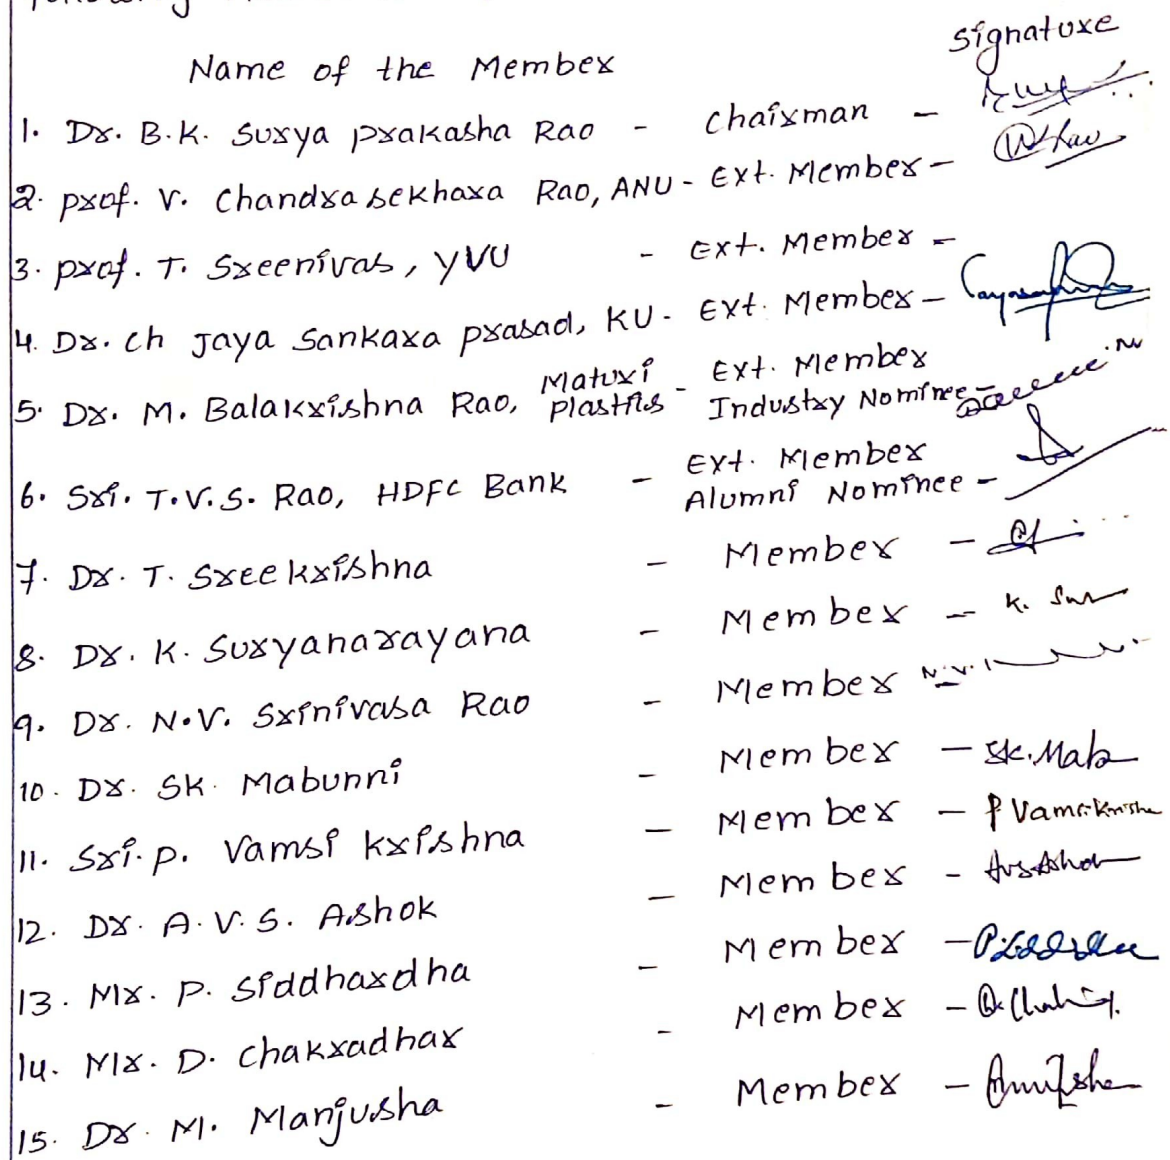 following
Name of the Member Signature
1. Dr. B.K. Surya prakasha Rao - Chairman -
2. prof. V. Chandrasekhara Rao, ANU - Ext. Member -
3. prof. T. Sreenivas, YVU - Ext. Member -
4. Dr. Ch Jaya Sankara prasad, KU - Ext. Member -
5. Dr. M. Balakrishna Rao, Maturi Plastics - Ext. Member Industry Nominee -
6. Sri. T.V.S. Rao, HDFC Bank - Ext. Member Alumni Nominee -
7. Dr. T. Sreekrishna - Member -
8. Dr. K. Suryanarayana - Member - K. Sur
9. Dr. N.V. Srinivasa Rao - Member N.V.
10. Dr. SK. Mabunni - Member - SK. Mab
11. Sri. p. Vamsi krishna - Member - P Vamsi Krishna
12. Dr. A.V.S. Ashok - Member - AVS Ashok
13. Mr. P. Siddhardha - Member -
14. Mr. D. Chakradhar - Member -
15. Dr. M. Manjusha - Member -